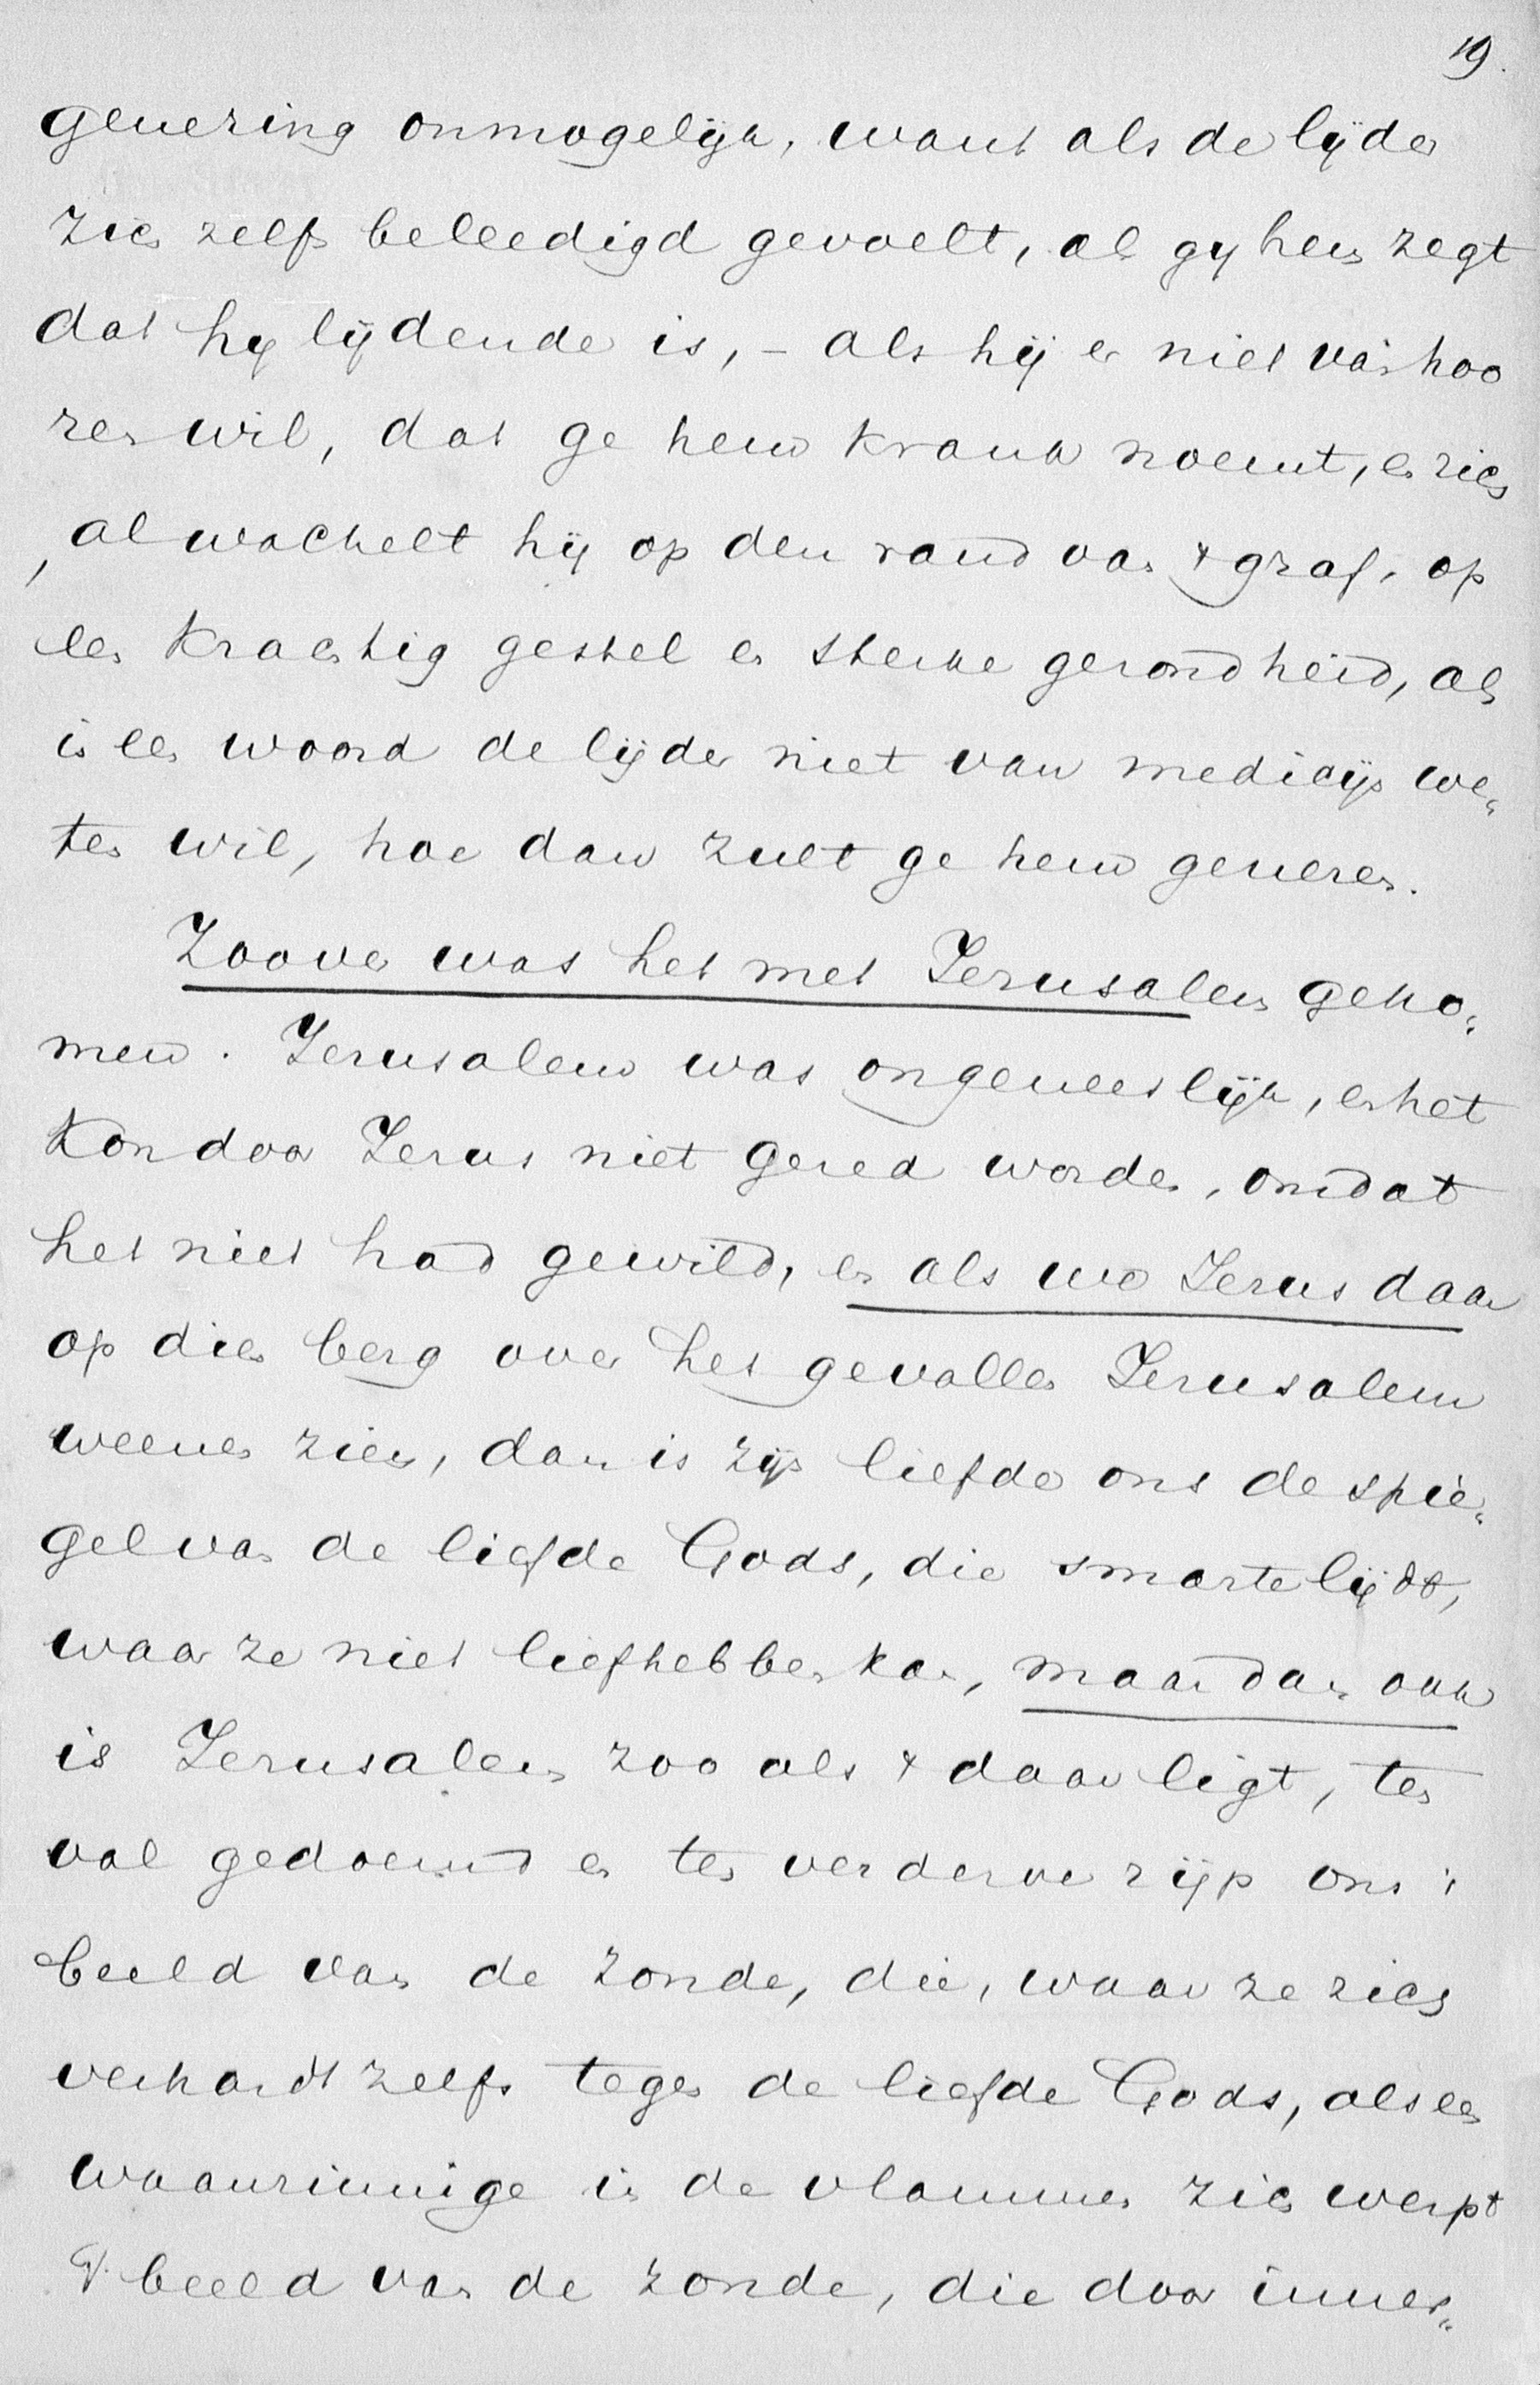 19.
genezing onmogelijk, want als de lijder
zich zelfs beleedigd gevoelt, als gij hem zegt
dat hij lijdende is, – als hij er niet van hoo
ren wil, dat ge hem krank noemt, en zich
, al wachelt hij op den rand van 't graf, op
een krachtig gestel en sterke gezondheid, als
in een woord de lijder niet van medicijn we„
ten wil, hoe dan zult ge hem genezen.
Zoover was het met Jerusalem geko„
men. Jerusalem was ongeneeslijk, en het
kon door Jezus niet gered worden, omdat
het niet had gewild, en als we Jezus daar
op dien berg over het gevallen Jerusalem
weenen zien, dan is zijn liefde ons de spie„
gel van de liefde Gods, die smarte lijdt,
waar ze niet liefhebben kan, maar dan ook
is Jerusalem zoo als 't daar ligt, ten
val gedoemd en ten verderve rijp ons 't
beeld van de zonde, die, waar ze zich
verhardt zelfs tegen de liefde Gods, als een
waanzinnige in de vlammen zich werpt
't beeld van de zonde, die door inner„